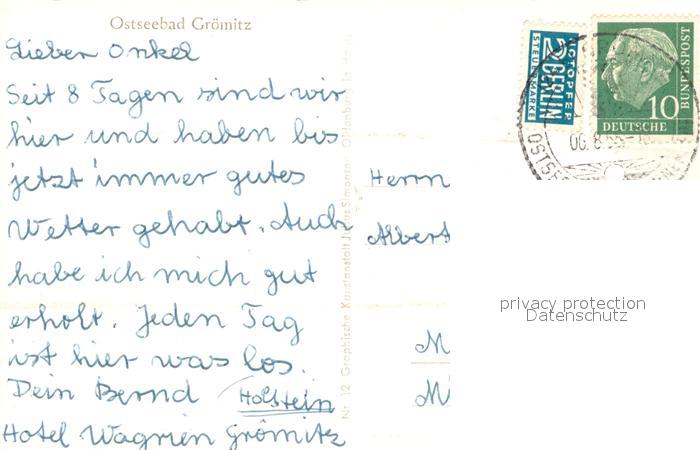 Ostseebad Grömitz
Lieber Onkel
Seit 8 Tagen sind wir
hier und haben bis
jetzt immer gutes
Wetter gehabt. Auch
habe ich mich gut
erholt. Jeden Tag
ist hier was los.
Dein Bernd Holstein
Hotel Wagrien Grömitz
Nr. 12 Graphische Kunstanstalt Julius Simonsen Oldenburg in Ho
NOTOPFER
2 BERLIN
STEUERMARKE
10
DEUTSCHE
BUNDESPOST
Herrn
Albert
M
M
privacy protection
Datenschutz